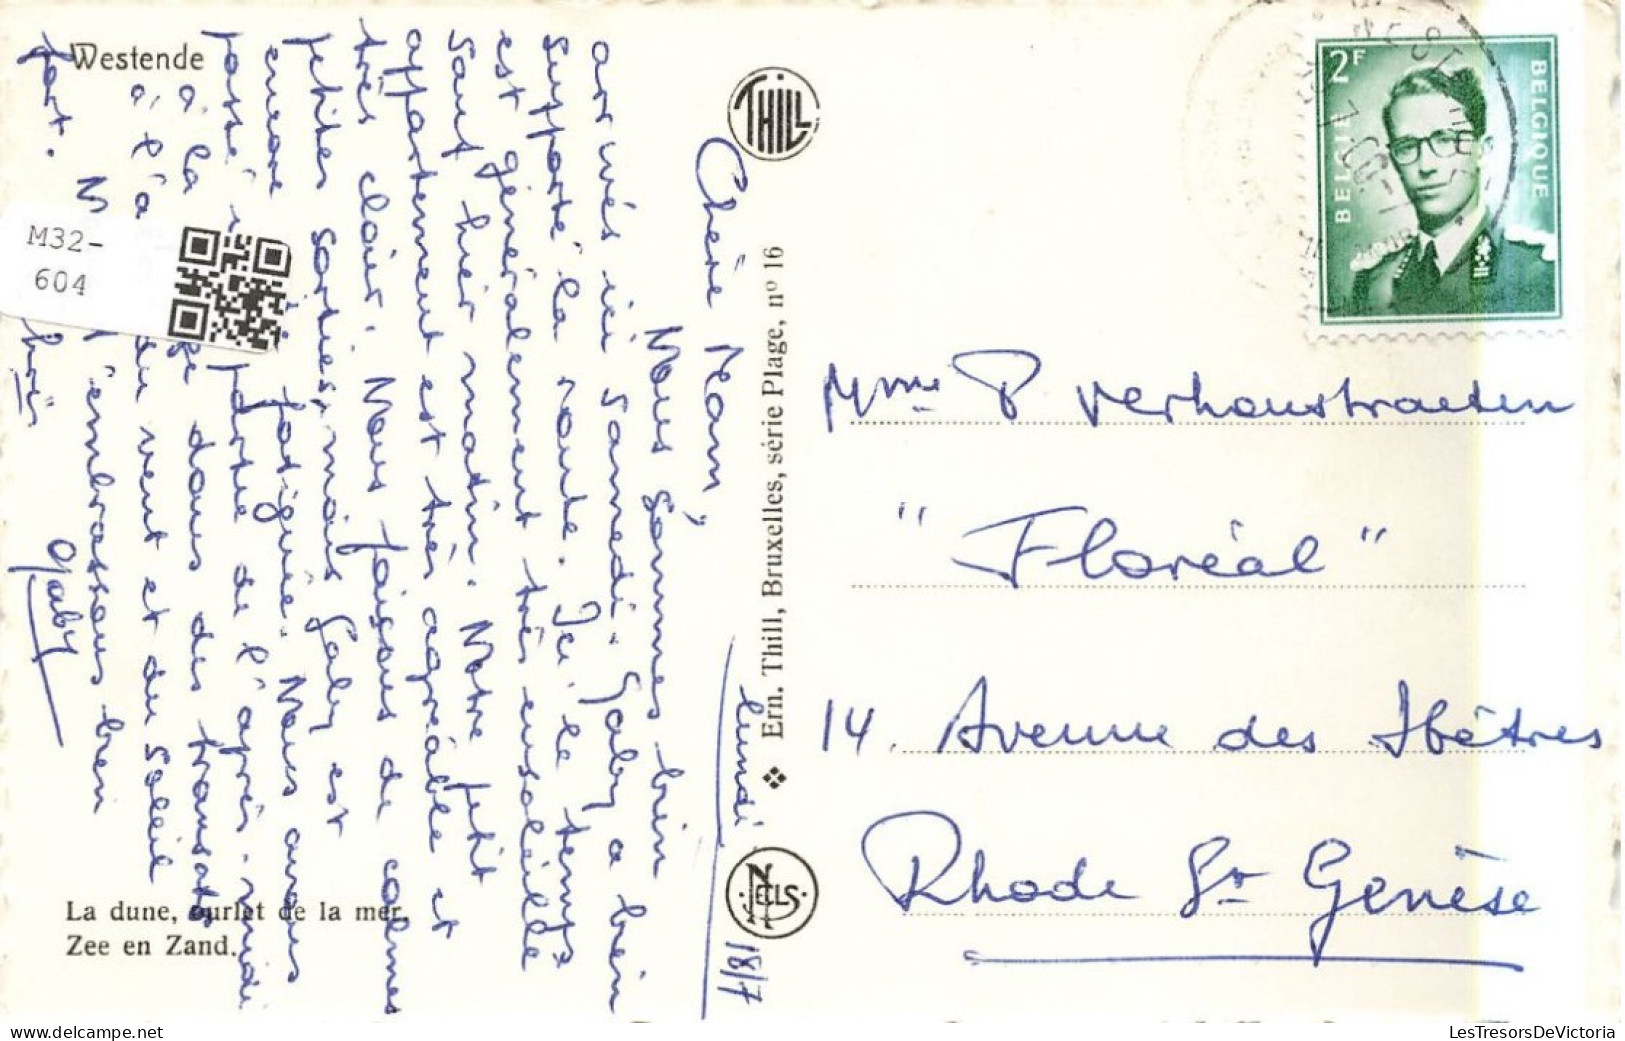 Westende
La dune, ourlet de la mer.
Zee en Zand.
THILL
Ern. Thill, Bruxelles, série Plage, nº 16
NELS
2F
BELGIE BELGIQUE
M32-
604
lundi 18/7
Chère Mam,
Nous sommes bien
arrivés ici samedi. Gaby a bien
supporté la route. Ici le temps
est généralement très ensoleillé
sauf hier matin. Notre petit
appartement est très agréable et
très clair. Nous faisons de calmes
petites sorties, mais Gaby est
encore fatiguée. Nous avons
passé partie de l'après-midi
à la dans des transats
à l'a du vent et du soleil
l'embrassons bien
fort.
Gaby
Mme P Verhoustraeten
"Floréal"
14. Avenue des Hêtres
Rhode St Genèse
LesTresorsDeVictoria